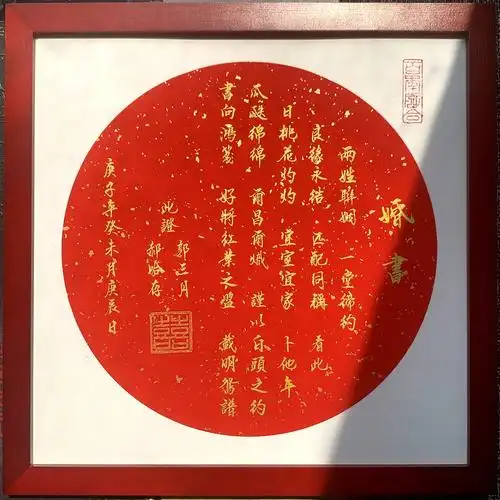 百年好合
婚書
兩姓聯姻 一堂締約
良緣永結 匹配同稱 看此
日桃花灼灼 宜室宜家 卜他年
瓜瓞綿綿 爾昌爾熾 謹以白頭之約
書向鴻箋 好將紅葉之盟 載明鴛譜
此證
庚子年癸未月庚辰日
囍